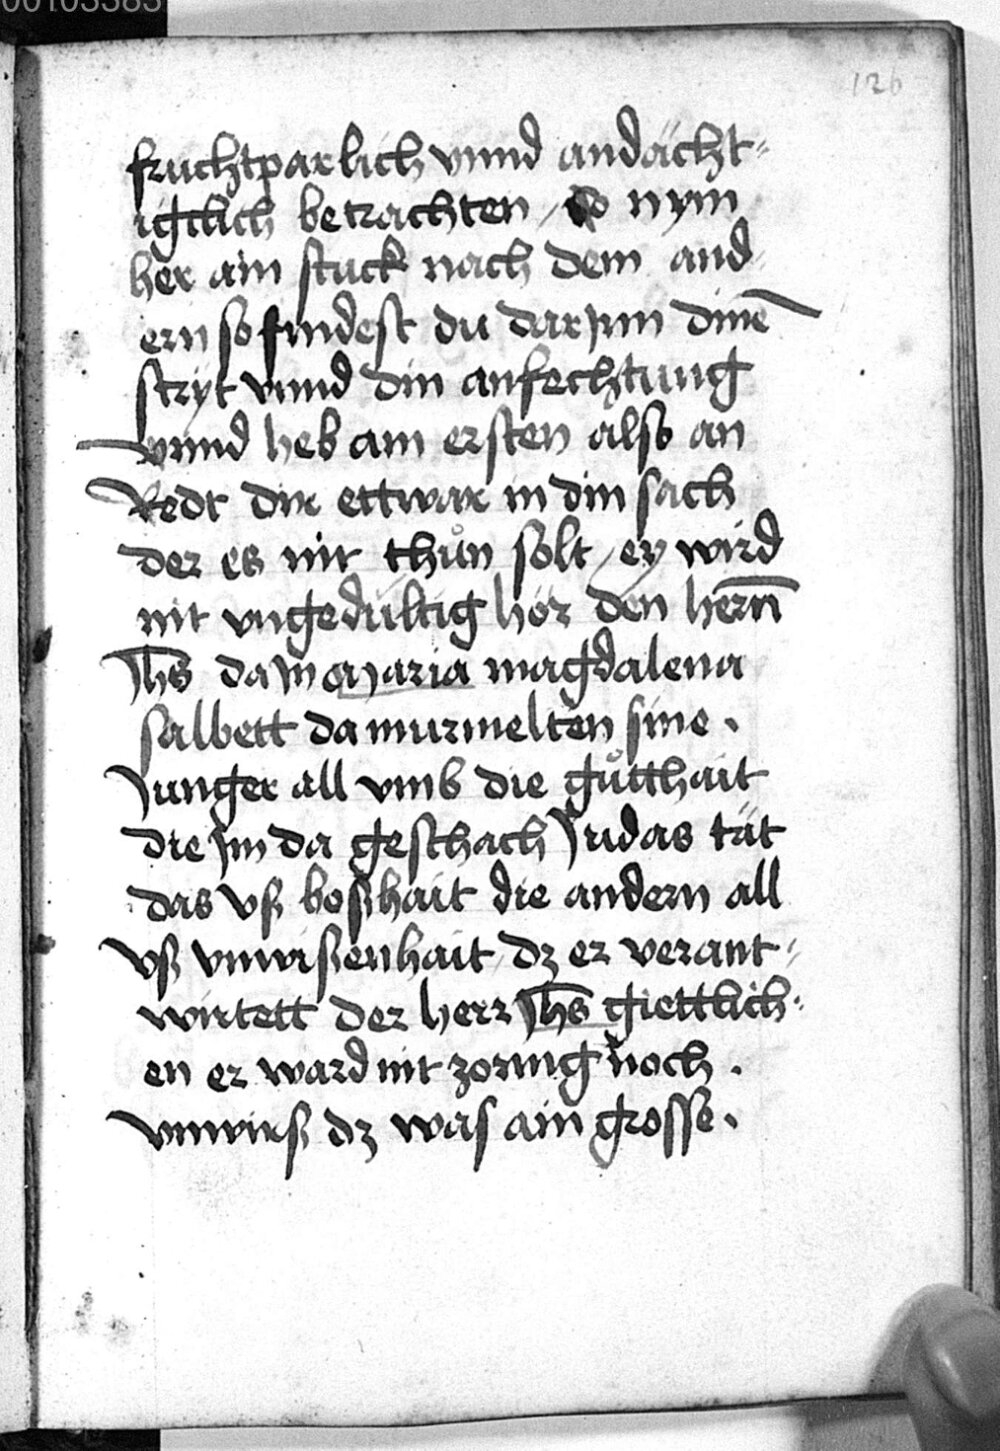 00103383
126
fruchtparlich vnnd andächt⸗
igclich betrachten / so nym
her ain stuck nach dem and⸗
ern so findest du dar jnn dinē
stryt vnnd din anfechtung
vnnd heb am ersten also an
Redt dir ettwar in din sach
der es nit thůn solt / ey wird
nit vngedultig hör den hern̄
Jhs da jn maria magdalena
salbett da murmelten sine .
Junger all vmb die gůtthait
die jm da geschach Judas tät
das vß boßhait die andern all
vß vnwißenhait dz er verant⸗
wirtett der herr Jhs giettlich⸗
en er ward nit zornig noch .
vnwirß dz was ain grosse .